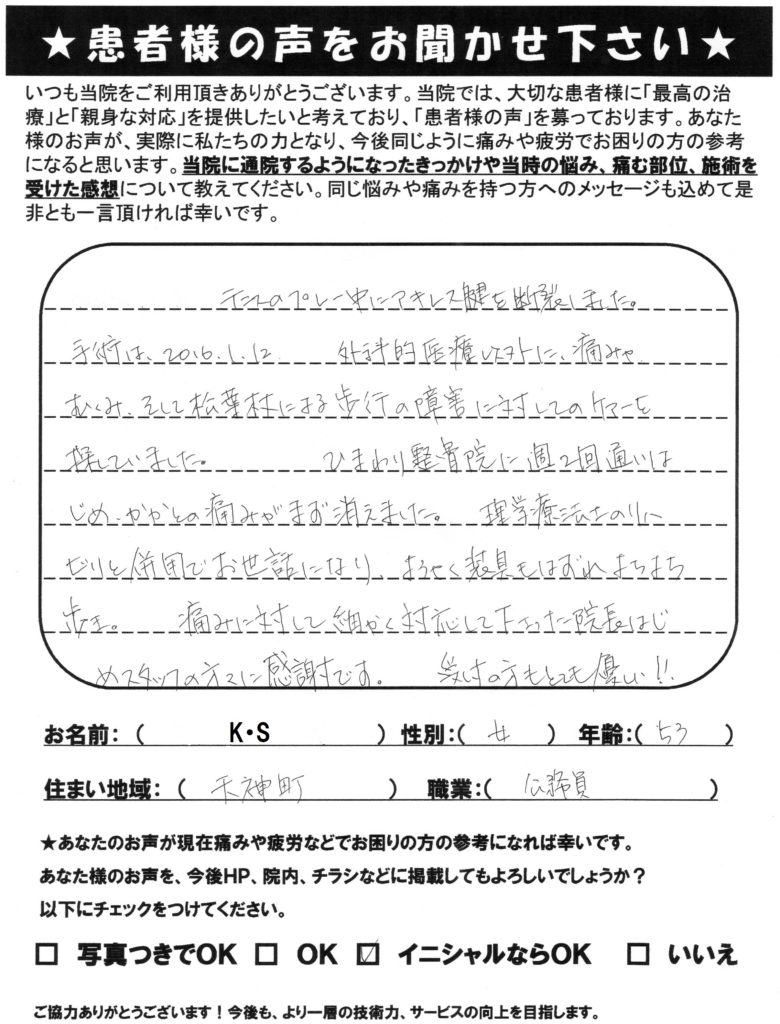 ★患者様の声をお聞かせ下さい★
いつも当院をご利用頂きありがとうございます。当院では、大切な患者様に「最高の治
療」と「親身な対応」を提供したいと考えており、「患者様の声」を募っております。あなた
様のお声が、実際に私たちの力となり、今後同じように痛みや疲労でお困りの方の参考
になると思います。当院に通院するようになったきっかけや当時の悩み、痛む部位、施術を
受けた感想について教えてください。同じ悩みや痛みを持つ方へのメッセージも込めて是
非とも一言頂ければ幸いです。
テニスのプレー中にアキレス腱を断裂しました。
手術は、2016.1.12 外科的医療以外に、痛みや
むくみ、そして松葉杖による歩行の障害に対してのケアーを
探していました。 ひまわり整骨院に週2回通いは
じめ、かかとの痛みがまず消えました。 理学療法士のリハ
ビリと併用でお世話になり、ようやく装具もはずれまちまち
歩き。 痛みに対して細かく対応して下さった院長はじ
めスタッフの方々に感謝です。 受付の方もとても優しい!!
お名前:( K・S ) 性別:( 女 ) 年齢:( 53 )
住まい地域:( 天神町 ) 職業:( 公務員 )
★あなたのお声が現在痛みや疲労などでお困りの方の参考になれば幸いです。
あなた様のお声を、今後HP、院内、チラシなどに掲載してもよろしいでしょうか?
以下にチェックをつけてください。
□ 写真つきでOK □ OK ☑ イニシャルならOK □ いいえ
ご協力ありがとうございます!今後も、より一層の技術力、サービスの向上を目指します。